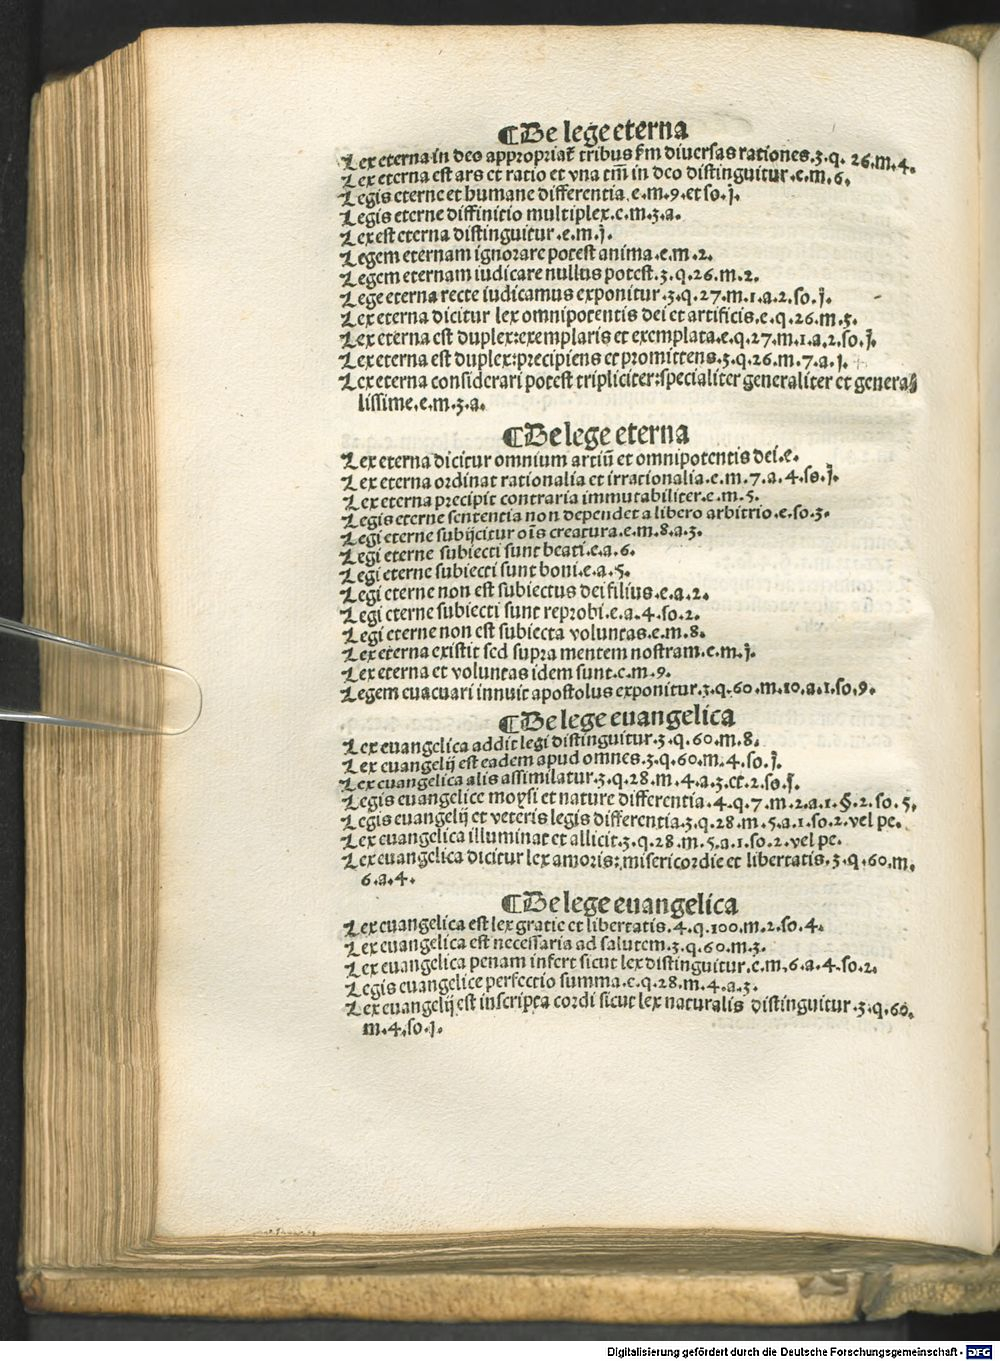 ¶De lege eterna
Lex eterna in deo appropriat᷑ tribus ẜm diuersas rationes.3.q. 26.m.4.
Lex eterna est ars et ratio et vna tm̄ in deo distinguitur.e.m.6.
Legis eterne et humane differentia.e.m.9.et so.j.
Legis eterne diffinitio multiplex.e.m.3.a.
Lex est eterna distinguitur.e.m.j.
Legem eternam ignorare potest anima.e.m.2.
Legem eternam iudicare nullus potest.3.q.26.m.2.
Lege eterna recte iudicamus exponitur.3.q.27.m.1.a.2.so.j.
Lex eterna dicitur lex omnipotentis dei et artificis.e.q.26.m.5.
Lex eterna est duplex:exemplaris et exemplata.e.q.27.m.1.a.2.so.j.
Lex eterna est duplex:precipiens et promittens.3.q.26.m.7.a.j.
Lex eterna considerari potest tripliciter:specialiter generaliter et genera⸗
lissime.e.m.3.a.
¶De lege eterna
Lex eterna dicitur omnium artiū et omnipotentis dei.e.
Lex eterna ordinat rationalia et irrationalia.e.m.7.a.4.so.j.
Lex eterna precipit contraria immutabiliter.e.m.5.
Legis eterne sententia non dependet a libero arbitrio.e.so.3.
Legi eterne subijcitur oīs creatura.e.m.8.a.3.
Legi eterne subiecti sunt beati.e.a.6.
Legi eterne subiecti sunt boni.e.a.5.
Legi eterne non est subiectus dei filius.e.a.2.
Legi eterne subiecti sunt reprobi.e.a.4.so.2.
Legi eterne non est subiecta voluntas.e.m.8.
Lex eterna existit sed supra mentem nostram.e.m.j.
Lex eterna et voluntas idem sunt.e.m.9.
Legem euacuari innuit apostolus exponitur.3.q.60.m.10.a.1.so.9.
¶De lege euangelica
Lex euangelica addit legi distinguitur.3.q.60.m.8.
Lex euangelij est eadem apud omnes.3.q.60.m.4.so.j.
Lex euangelica alis assimilatur.3.q.28.m.4.a.3.et.2.so.j.
Legis euangelice moysi et nature differentia.4.q.7.m.2.a.1.§.2.so.5.
Legis euangelij et veteris legis differentia.3.q.28.m.5.a.1.so.2.vel pe.
Lex euangelica illuminat et allicit.3.q.28.m.5.a.1.so.2.vel pe.
Lex euangelica dicitur lex amoris:misericordie et libertatis.3.q.60.m.
6.a.4.
¶De lege euangelica
Lex euangelica est lex gratie et libertatis.4.q.100.m.2.so.4.
Lex euangelica est necessaria ad salutem.3.q.60.m.3.
Lex euangelica penam infert sicut lex distinguitur.e.m.6.a.4.so.2.
Legis euangelice perfectio summa.e.q.28.m.4.a.3.
Lex euangelij est inscripta cordi sicut lex naturalis distinguitur.3.q.60.
m.4.so.j.
Digitalisierung gefördert durch die Deutsche Forschungsgemeinschaft - DFG